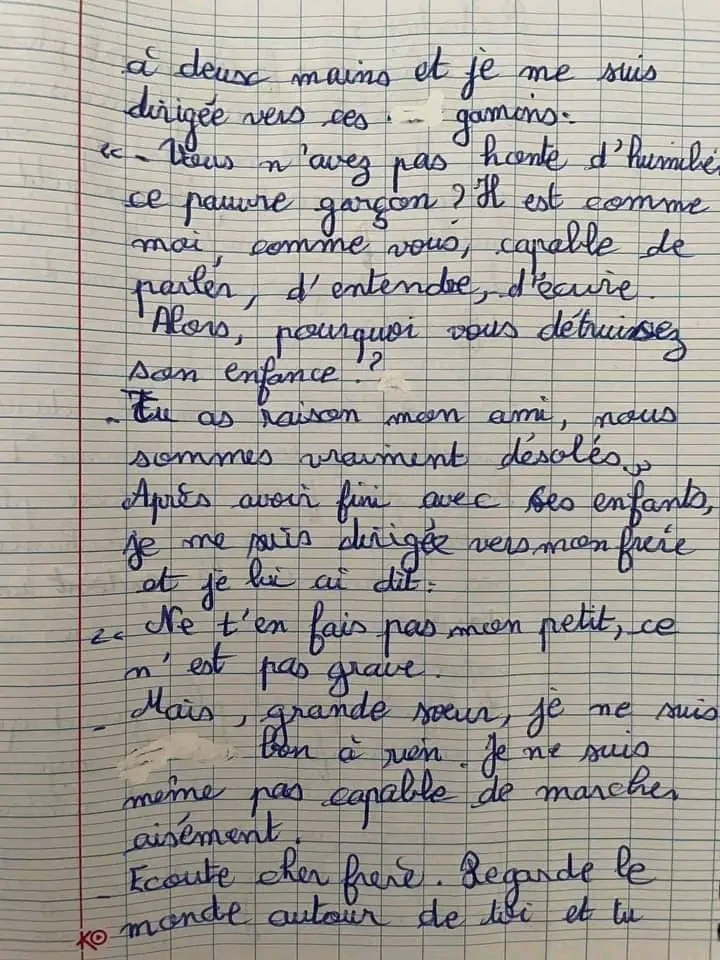 à deux mains et je me suis
dirigée vers ces gamins:
« - Vous n'avez pas honte d'humilié
ce pauvre garçon ? Il est comme
moi, comme vous, capable de
parler, d'entendre, d'écrire.
Alors, pourquoi vous détruisez
son enfance ?
- Tu as raison mon ami, nous
sommes vraiment désolés »
Après avoir fini avec ses enfants,
je me suis dirigée vers mon frère
et je lui ai dit:
« Ne t'en fais pas mon petit, ce
n'est pas grave.
- Mais, grande sœur, je ne suis
bon à rien. Je ne suis
même pas capable de marcher
aisément.
- Ecoute cher frère. Regarde le
monde autour de toi et tu
KO